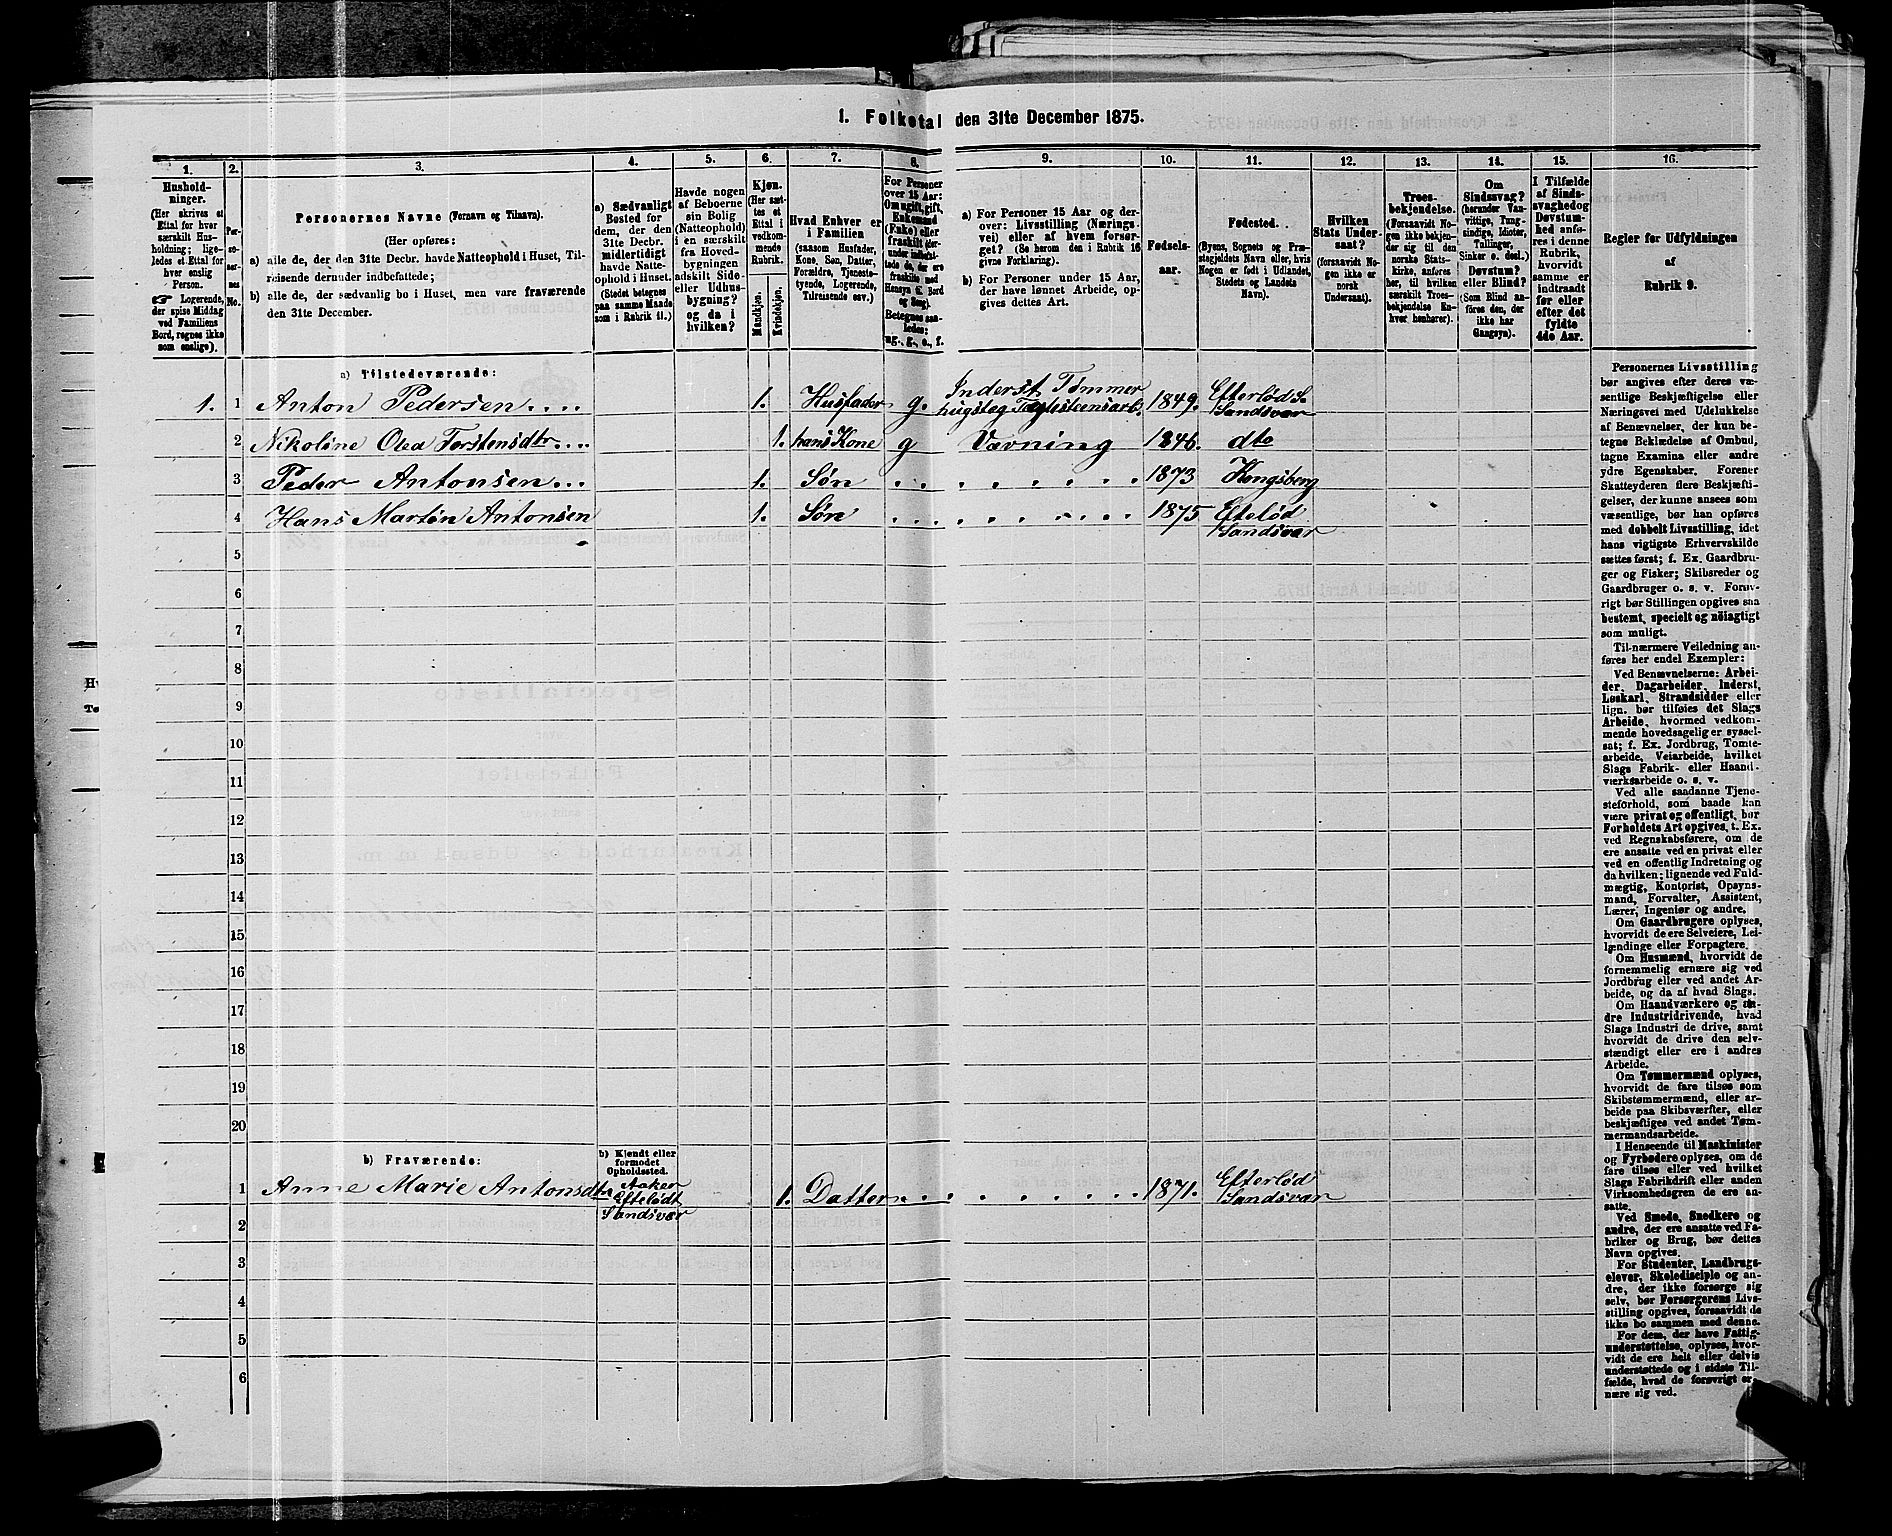 1. Folketal den 31te December 1875.
1.
Hushold-
ninger.
(Her skrives et
Ettal for hver
særskilt Hus-
holdning; lige-
ledes et Ettal for
hver enslig
Person.
☞ Logerende,
der spise Middag
ved Familiens
Bord, regnes ikke
som enslige).
2.
Per-
so-
ner-
nes
No.
3.
Personernes Navne (Fornavn og Tilnavn).
(Her opføres:
a) alle de, der den 31te Decbr. havde Natteophold i Huset, Til-
reisende derunder indbefattede;
b) alle de, der sædvanlig bo i Huset, men vare fraværende
den 31te December.
4.
a) Sædvanligt
Bosted for
dem, der den
31te Decbr.
midlertidigt
havde Natte-
ophold i Huset.
(Stedet betegnes
paa samme Maade
som i Rubrik 11.)
5.
Havde nogen
af Beboerne
sin Bolig
(Natteophold)
i en særskilt
fra Hoved-
bygningen
adskilt Side-
eller Udhus-
bygning?
og da i
hvilken?
6.
Kjøn.
(Her sæt-
tes et
Ettal i
vedkom-
mende
Rubrik.
Mandkjøn.
Kvindekjøn.
7.
Hvad Enhver er
i Familien
(saasom Husfader,
Kone, Søn, Datter,
Forældre, Tjeneste-
tyende, Logerende,
Tilreisende osv.)
8.
For Personer
over 15 Aar:
Om ugift, gift,
Enkemand
(Enke) eller
fraskilt (der-
under indbefat-
tede de, der ere
fraskilte med
Hensyn til Bord
og Seng).
Betegnes saa-
ledes:
ug., g., e., f.
9.
a) For Personer 15 Aar og der-
over: Livsstilling (Nærings-
vei) eller af hvem forsør-
get? (Se herom den i Rubrik 16
givne Forklaring).
b) For Personer under 15 Aar,
der have lønnet Arbeide, op-
gives dettes Art.
10.
Fødsels-
aar.
11.
Fødested.
(Byens, Sognets og Præ-
stegjeldets Navn eller, hvis
Nogen er født i Udlandet,
Stedets og Landets
Navn).
12.
Hvilken
Stats Under-
saat?
(forsaavidt No-
gen ikke er
norsk
Undersaat).
13.
Troes-
bekjendelse.
(Forsaavidt No-
gen ikke bekjen-
der sig til den
norske Stats-
kirke, anføres
her, til hvilken
særskilt Troes-
bekjendelse En-
hver henhører).
14.
Om
Sindssvag?
(herunder Van-
vittige, Tung-
sindige, Idioter,
Tullinger,
Sinker o. desl.)
Døvstum?
eller Blind?
(Som Blind an-
føres den, der
ikke har
Gangsyn).
15.
I Tilfælde
af Sinds-
svaghed og
Døvstum-
hed anfø-
res i denne
Rubrik,
hvorvidt
samme er
indtraadt
før eller
efter det
fyldte
4de Aar.
16.
Regler for Udfyldningen
af
Rubrik 9.
a) Tilstedeværende:
1. 1 Anton Pedersen.... 1. Husfader g. Inderst Tømmer hugst og Teglsteensarb. 1849. Efterlød S. Sandsvær
2 Nikoline Olea Torstensdtr... 1. hans Kone g Vævning 1846. dto
3 Peder Antonsen... 1. Søn 1873 Kongsberg
4 Hans Martin Antonsen 1. Søn 1875 Eftelød Sandsvær
5
6
7
8
9
10
11
12
13
14
15
16
17
18
19
20
b) Fraværende:
b) Kjendt eller
formodet
Opholdssted.
1 Anne Marie Antonsdtr Aaker Eftelødt Sandsvær 1. Datter 1871. Efterlød Sandsvær
2
3
4
5
6
Personernes Livsstilling
bør angives efter deres væ-
sentlige Beskjæftigelse eller
Næringsvei med Udelukkelse
af Benævnelser, der kun be-
tegne Beklædelse af Ombud,
tagne Examina eller andre
ydre Egenskaber. Forener
Skatteyderen flere Beskjæfti-
gelser, der kunne ansees som
væsentlige, bør han opføres
med dobbelt Livsstilling, idet
hans vigtigste Erhvervskilde
sættes først; f. Ex. Gaardbru-
ger og Fisker; Skibsreder og
Gaardbruger o. s. v. Forøv-
rigt bør Stillingen opgives saa
bestemt, specielt og nøiagtigt
som muligt.
Til nærmere Veiledning an-
føres her endel Exempler:
Ved Benævnelserne: Arbei-
der, Dagarbeider, Inderst,
Løskarl, Strandsidder eller
lign. bør tilføies det Slags
Arbeide, hvormed vedkom-
mende hovedsagelig er syssel-
sat; f. Ex. Jordbrug, Tomte-
arbeide, Veiarbeide, hvilket
Slags Fabrik- eller Haand-
værksarbeide o. s. v.
Ved alle saadanne Tjene-
steforhold, som baade kan
være privat og offentligt, bør
Forholdets Art opgives, t. Ex.
ved Regnskabsførere, om de
ere ansatte ved en privat eller
ved en offentlig Indretning og
da hvilken; lignende ved Fuld-
mægtig, Kontorist, Opsyns-
mand, Forvalter, Assistent,
Lærer, Ingeniør og andre.
Om Gaardbrugere oplyses,
hvorvidt de ere Selveiere, Lei-
lændinge eller Forpagtere.
Om Husmænd, hvorvidt de
fornemmelig ernære sig ved
Jordbrug eller ved andet Ar-
beide, og da af hvad Slags.
Om Haandværkere og an-
dre Industridrivende, hvad
Slags Industri de drive, samt
hvorvidt de drive den selv-
stændigt eller ere i andres
Arbeide.
Om Tømmermænd oplyses,
hvorvidt de fare tilsøs som
Skibstømmermænd, eller ar-
beide paa Skibsværfter, eller
beskjæftiges ved andet Tøm-
mermandsarbeide.
I Henseende til Maskinister
og Fyrbødere oplyses, om de
fare tilsøs eller ved hvilket
Slags Fabrikdrift eller anden
Virksomhedsgren de ere an-
satte.
Ved Smede, Snedkere og
andre, der ere ansatte ved Fa-
briker og Brug, bør dettes
Navn opgives.
For Studenter, Landbrugs-
elever, Skoledisciple og an-
dre, der ikke forsørge sig
selv, bør Forsørgerens Livs-
stilling opgives, forsaavidt de
ikke bo sammen med denne.
For dem, der have Fattig-
understøttelse, oplyses, hvor-
vidt de ere helt eller delvis
understøttede og i sidste Til-
fælde, hvad de forøvrigt er-
nære sig ved.